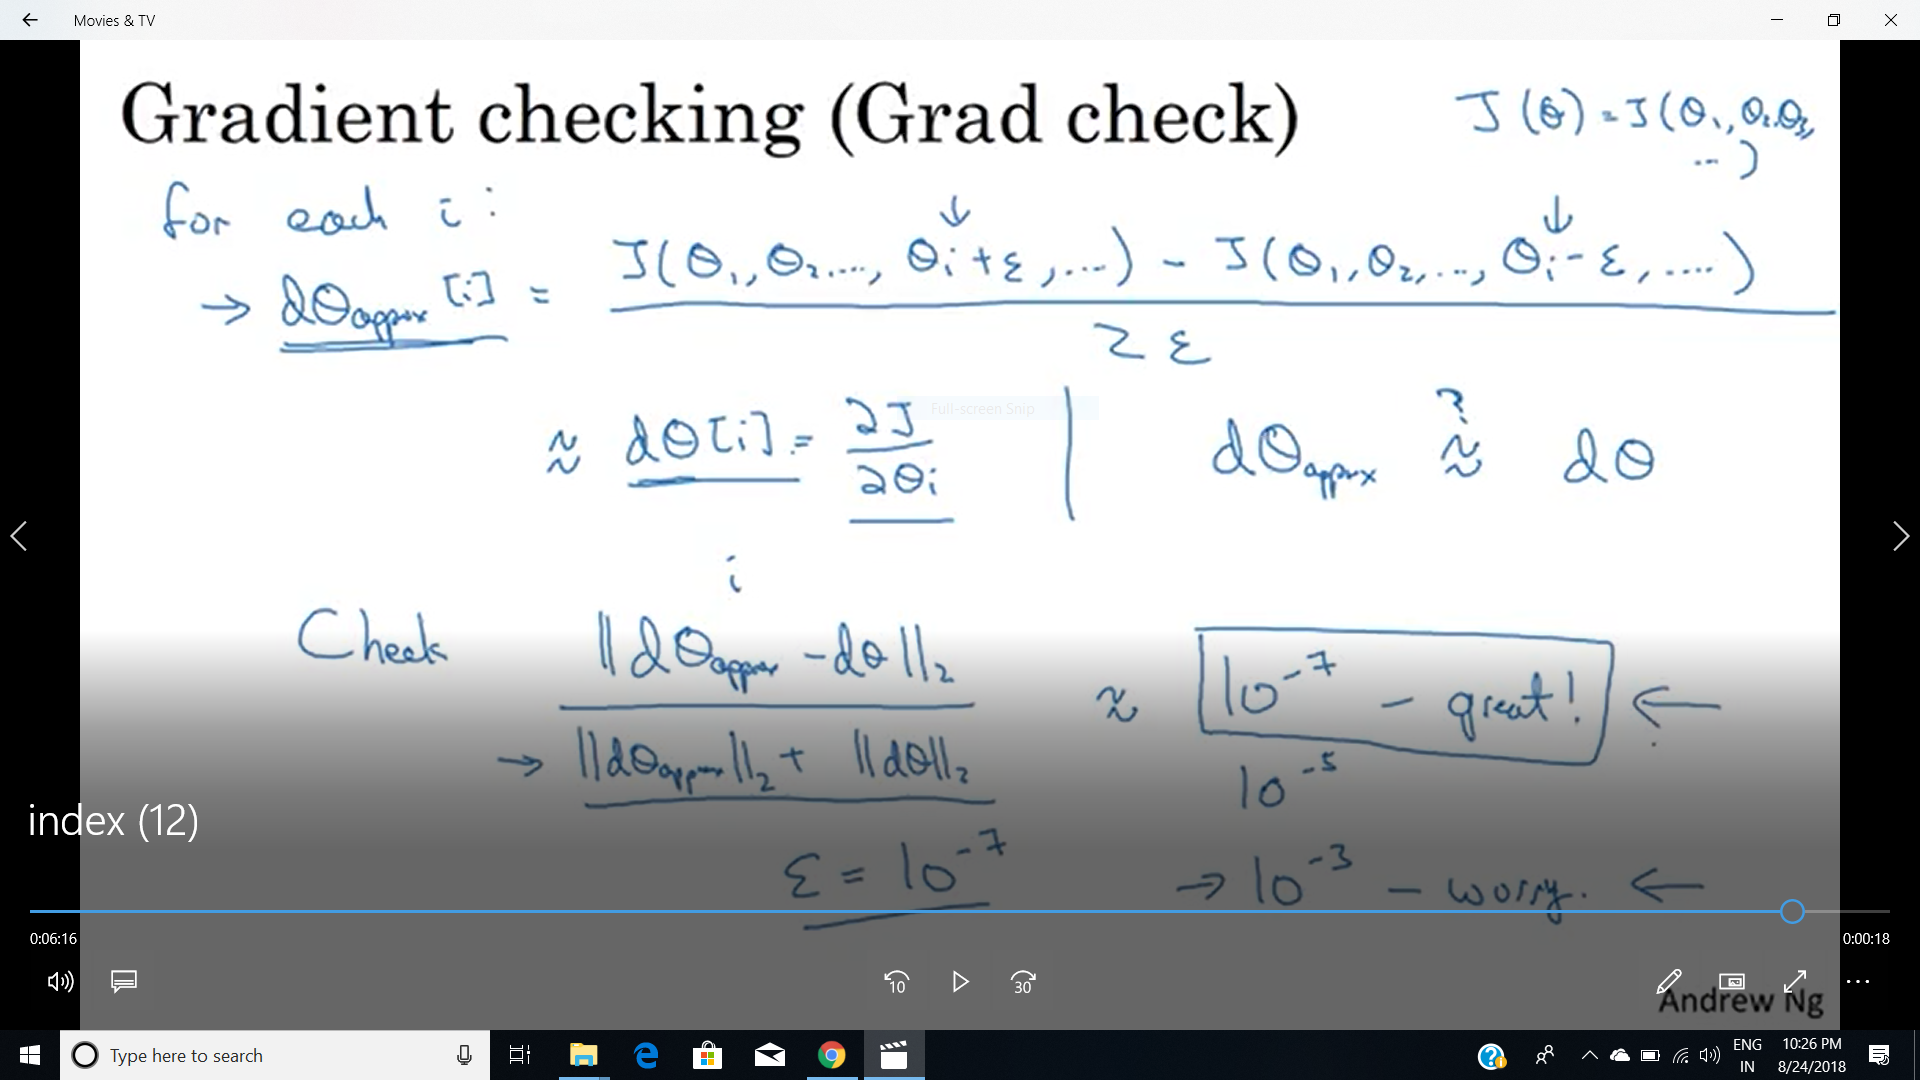 Movies & TV
Gradient checking (Grad check)
J(θ) = J(θ₁, θ₂, θ₃, ...)
for each i :
→ dθapprox[i] = J(θ₁, θ₂, ..., θᵢ+ε, ...) - J(θ₁, θ₂, ..., θᵢ-ε, ....)
2ε
≈ dθ[i] = ∂J/∂θᵢ | dθapprox ≈? dθ
Full-screen Snip
i
Check ||dθapprox - dθ||₂
→ ||dθapprox||₂ + ||dθ||₂
≈ 10⁻⁷ - great! ←
10⁻⁵
ε = 10⁻⁷
→ 10⁻³ - worry. ←
index (12)
0:06:16
0:00:18
10
30
Andrew Ng
Type here to search
ENG
IN
10:26 PM
8/24/2018